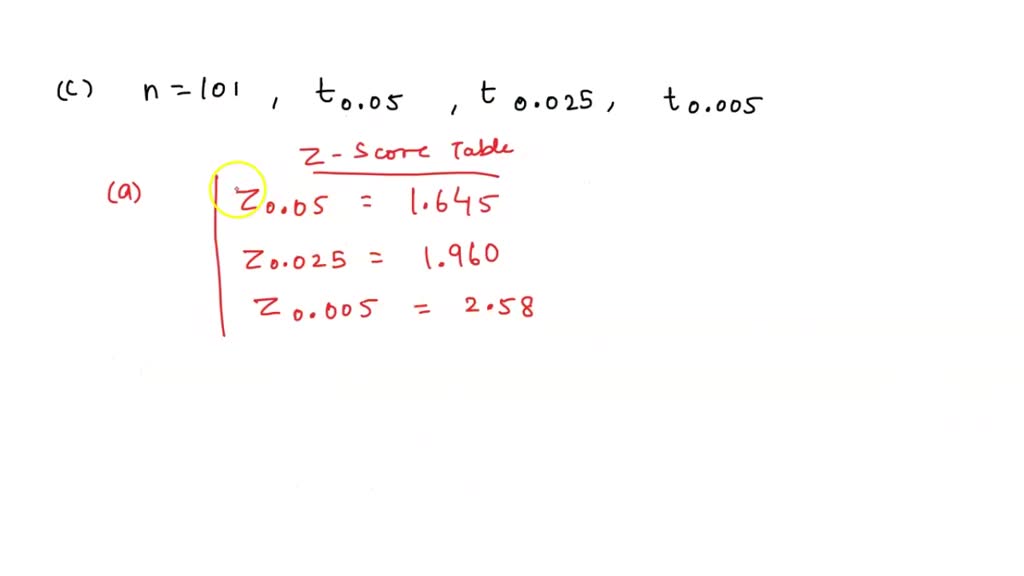 (c) n = 101 , t0.05 , t0.025, t0.005
Z - Score Table
(a) Z0.05 = 1.645
Z0.025 = 1.960
Z0.005 = 2.58